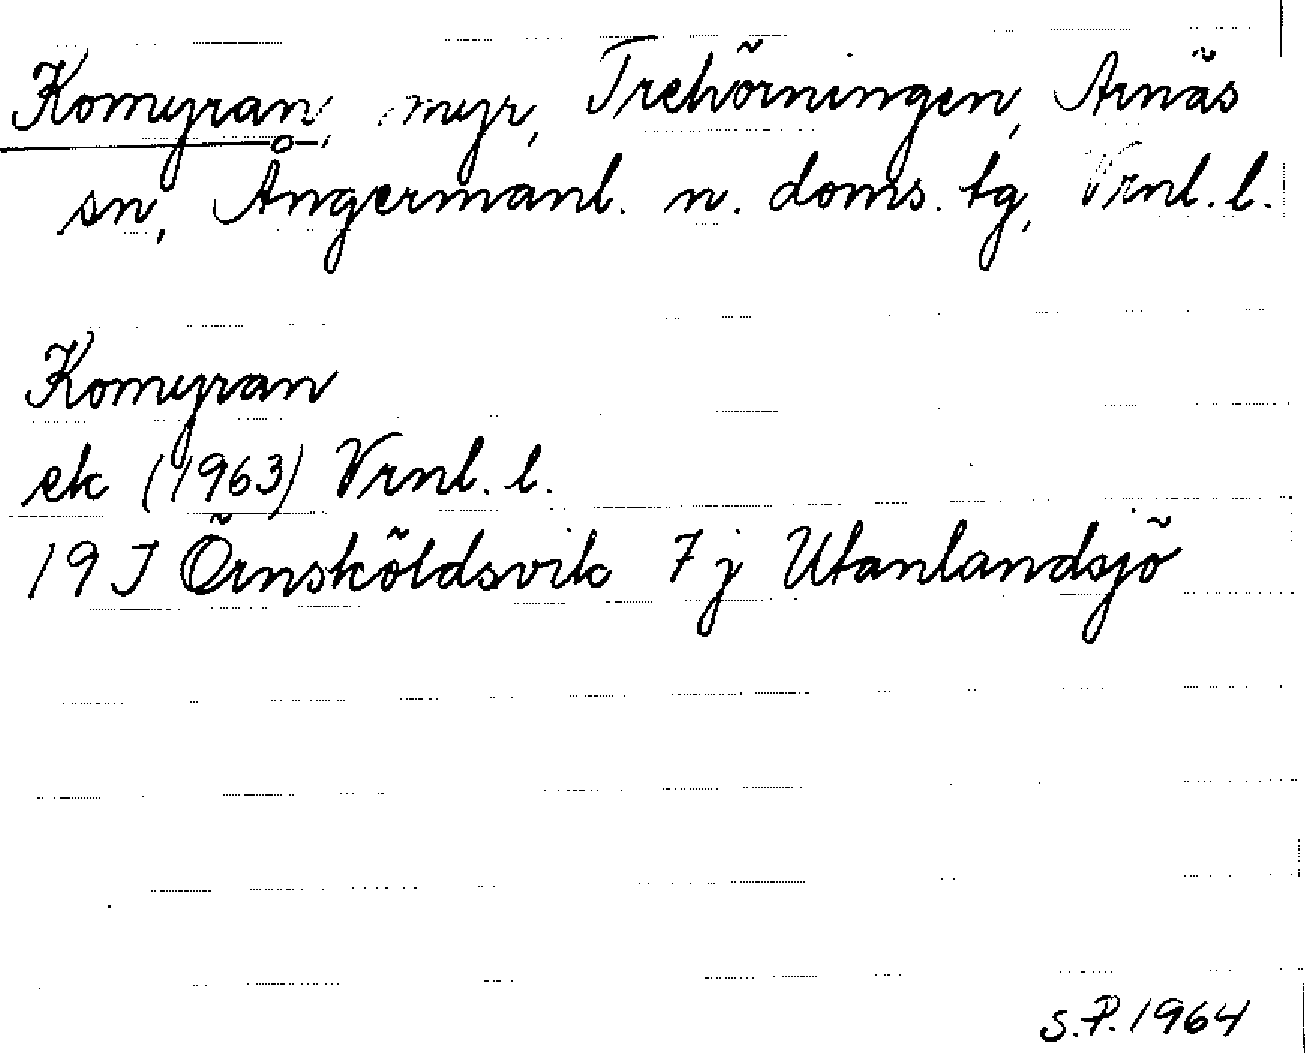 Komyran, myr, Trehörningen, Arnäs
sn, Ångermanl. n. doms. tg, Vrnl. l.
Komyran
ek (1963) Vrnl. l.
19 J Örnsköldsvik 7 j Utanlandsjö
S.P. 1964